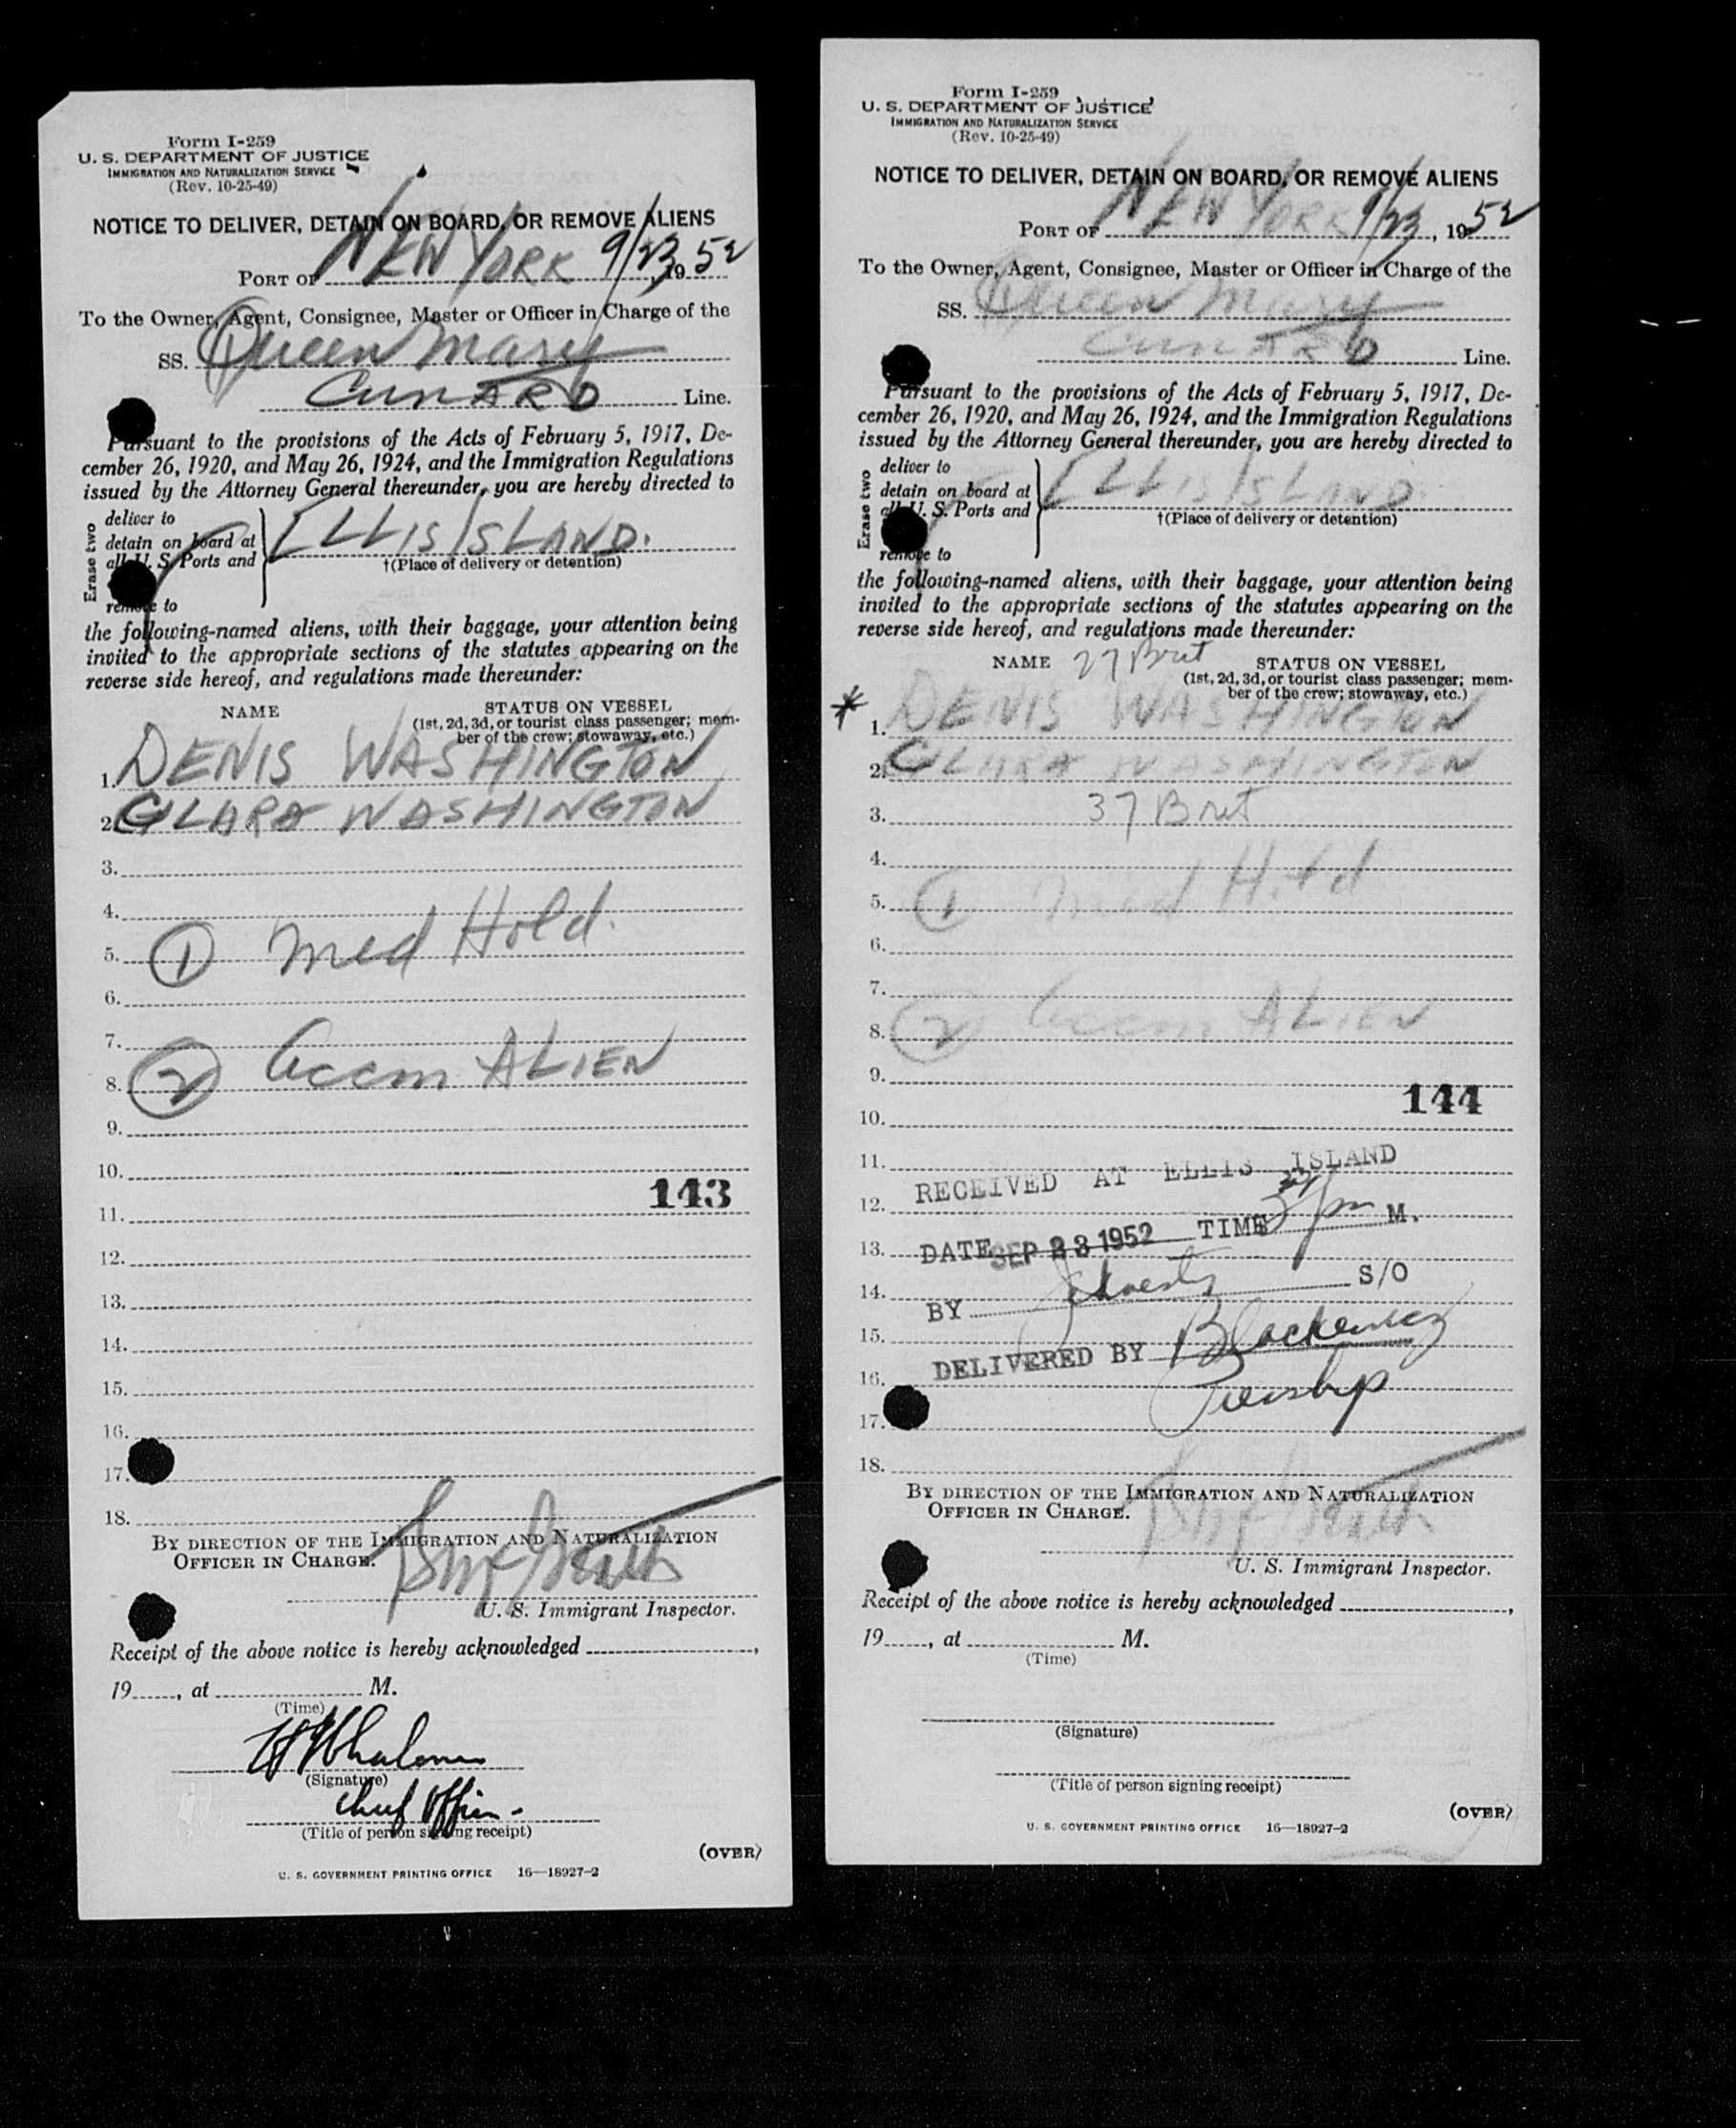 Form I-259
U. S. DEPARTMENT OF JUSTICE
IMMIGRATION AND NATURALIZATION SERVICE
(Rev. 10-25-49)
NOTICE TO DELIVER, DETAIN ON BOARD, OR REMOVE ALIENS
PORT OF NEW YORK 9/23, 1952
To the Owner, Agent, Consignee, Master or Officer in Charge of the
SS. Queen Mary
CUNARD Line.
Pursuant to the provisions of the Acts of February 5, 1917, De-
cember 26, 1920, and May 26, 1924, and the Immigration Regulations
issued by the Attorney General thereunder, you are hereby directed to
Erase two
deliver to
detain on board at
all U. S. Ports and
remove to
ELLIS ISLAND.
†(Place of delivery or detention)
the following-named aliens, with their baggage, your attention being
invited to the appropriate sections of the statutes appearing on the
reverse side hereof, and regulations made thereunder:
NAME STATUS ON VESSEL
(1st, 2d, 3d, or tourist class passenger; mem-
ber of the crew; stowaway, etc.)
1. DENIS WASHINGTON
2. CLARA WASHINGTON
3.
4.
5. ① Med Hold.
6.
7.
8. ② Accm ALIEN
9.
10.
143
11.
12.
13.
14.
15.
16.
17.
18.
BY DIRECTION OF THE IMMIGRATION AND NATURALIZATION
OFFICER IN CHARGE.
U. S. Immigrant Inspector.
Receipt of the above notice is hereby acknowledged
19, at M.
(Time)
Whalan
(Signature)
Chief Officer
(Title of person signing receipt)
(OVER)
U. S. GOVERNMENT PRINTING OFFICE 16—18927-2
Form I-259
U. S. DEPARTMENT OF JUSTICE
IMMIGRATION AND NATURALIZATION SERVICE
(Rev. 10-25-49)
NOTICE TO DELIVER, DETAIN ON BOARD, OR REMOVE ALIENS
PORT OF NEW YORK 9/23, 1952
To the Owner, Agent, Consignee, Master or Officer in Charge of the
SS. Queen Mary
CUNARD Line.
Pursuant to the provisions of the Acts of February 5, 1917, De-
cember 26, 1920, and May 26, 1924, and the Immigration Regulations
issued by the Attorney General thereunder, you are hereby directed to
Erase two
deliver to
detain on board at
all U. S. Ports and
remove to
ELLIS ISLAND
†(Place of delivery or detention)
the following-named aliens, with their baggage, your attention being
invited to the appropriate sections of the statutes appearing on the
reverse side hereof, and regulations made thereunder:
NAME 27 Brit STATUS ON VESSEL
(1st, 2d, 3d, or tourist class passenger; mem-
ber of the crew; stowaway, etc.)
* 1. DENIS WASHINGTON
2. CLARA WASHINGTON
3. 37 Brit
4.
5. ① Med Hold
6.
7.
8. ② Accm ALIEN
9.
144
10.
11.
RECEIVED AT ELLIS ISLAND
12.
13. DATE SEP 23 1952 TIME pm M.
14.
BY S/O
15.
DELIVERED BY Blackewicz
16.
17.
18.
BY DIRECTION OF THE IMMIGRATION AND NATURALIZATION
OFFICER IN CHARGE.
U. S. Immigrant Inspector.
Receipt of the above notice is hereby acknowledged
19, at M.
(Time)
(Signature)
(Title of person signing receipt)
(OVER)
U. S. GOVERNMENT PRINTING OFFICE 16—18927-2